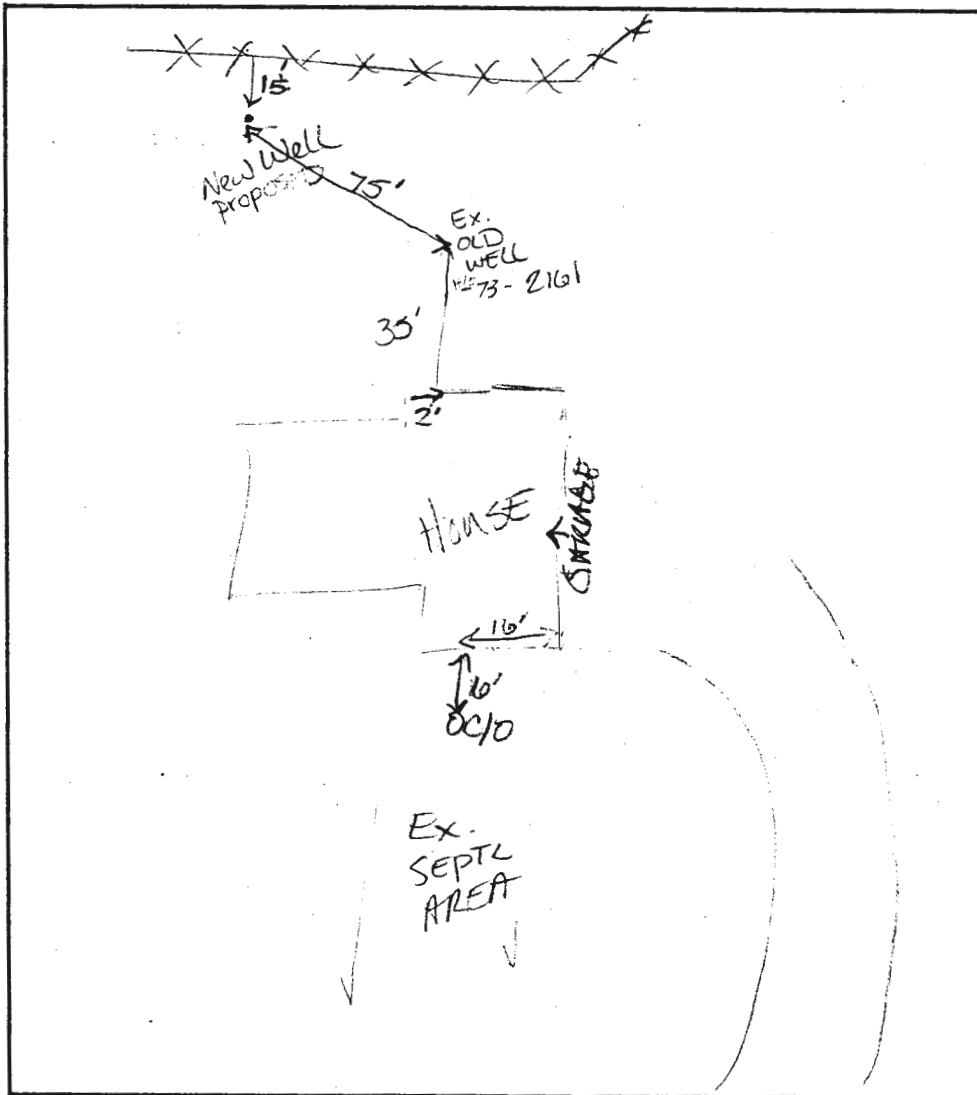 15'
New Well
proposed
75'
Ex.
OLD
WELL
73-2161
35'
2'
House
GARAGE
16'
16'
OC/O
Ex.
SEPTC
AREA